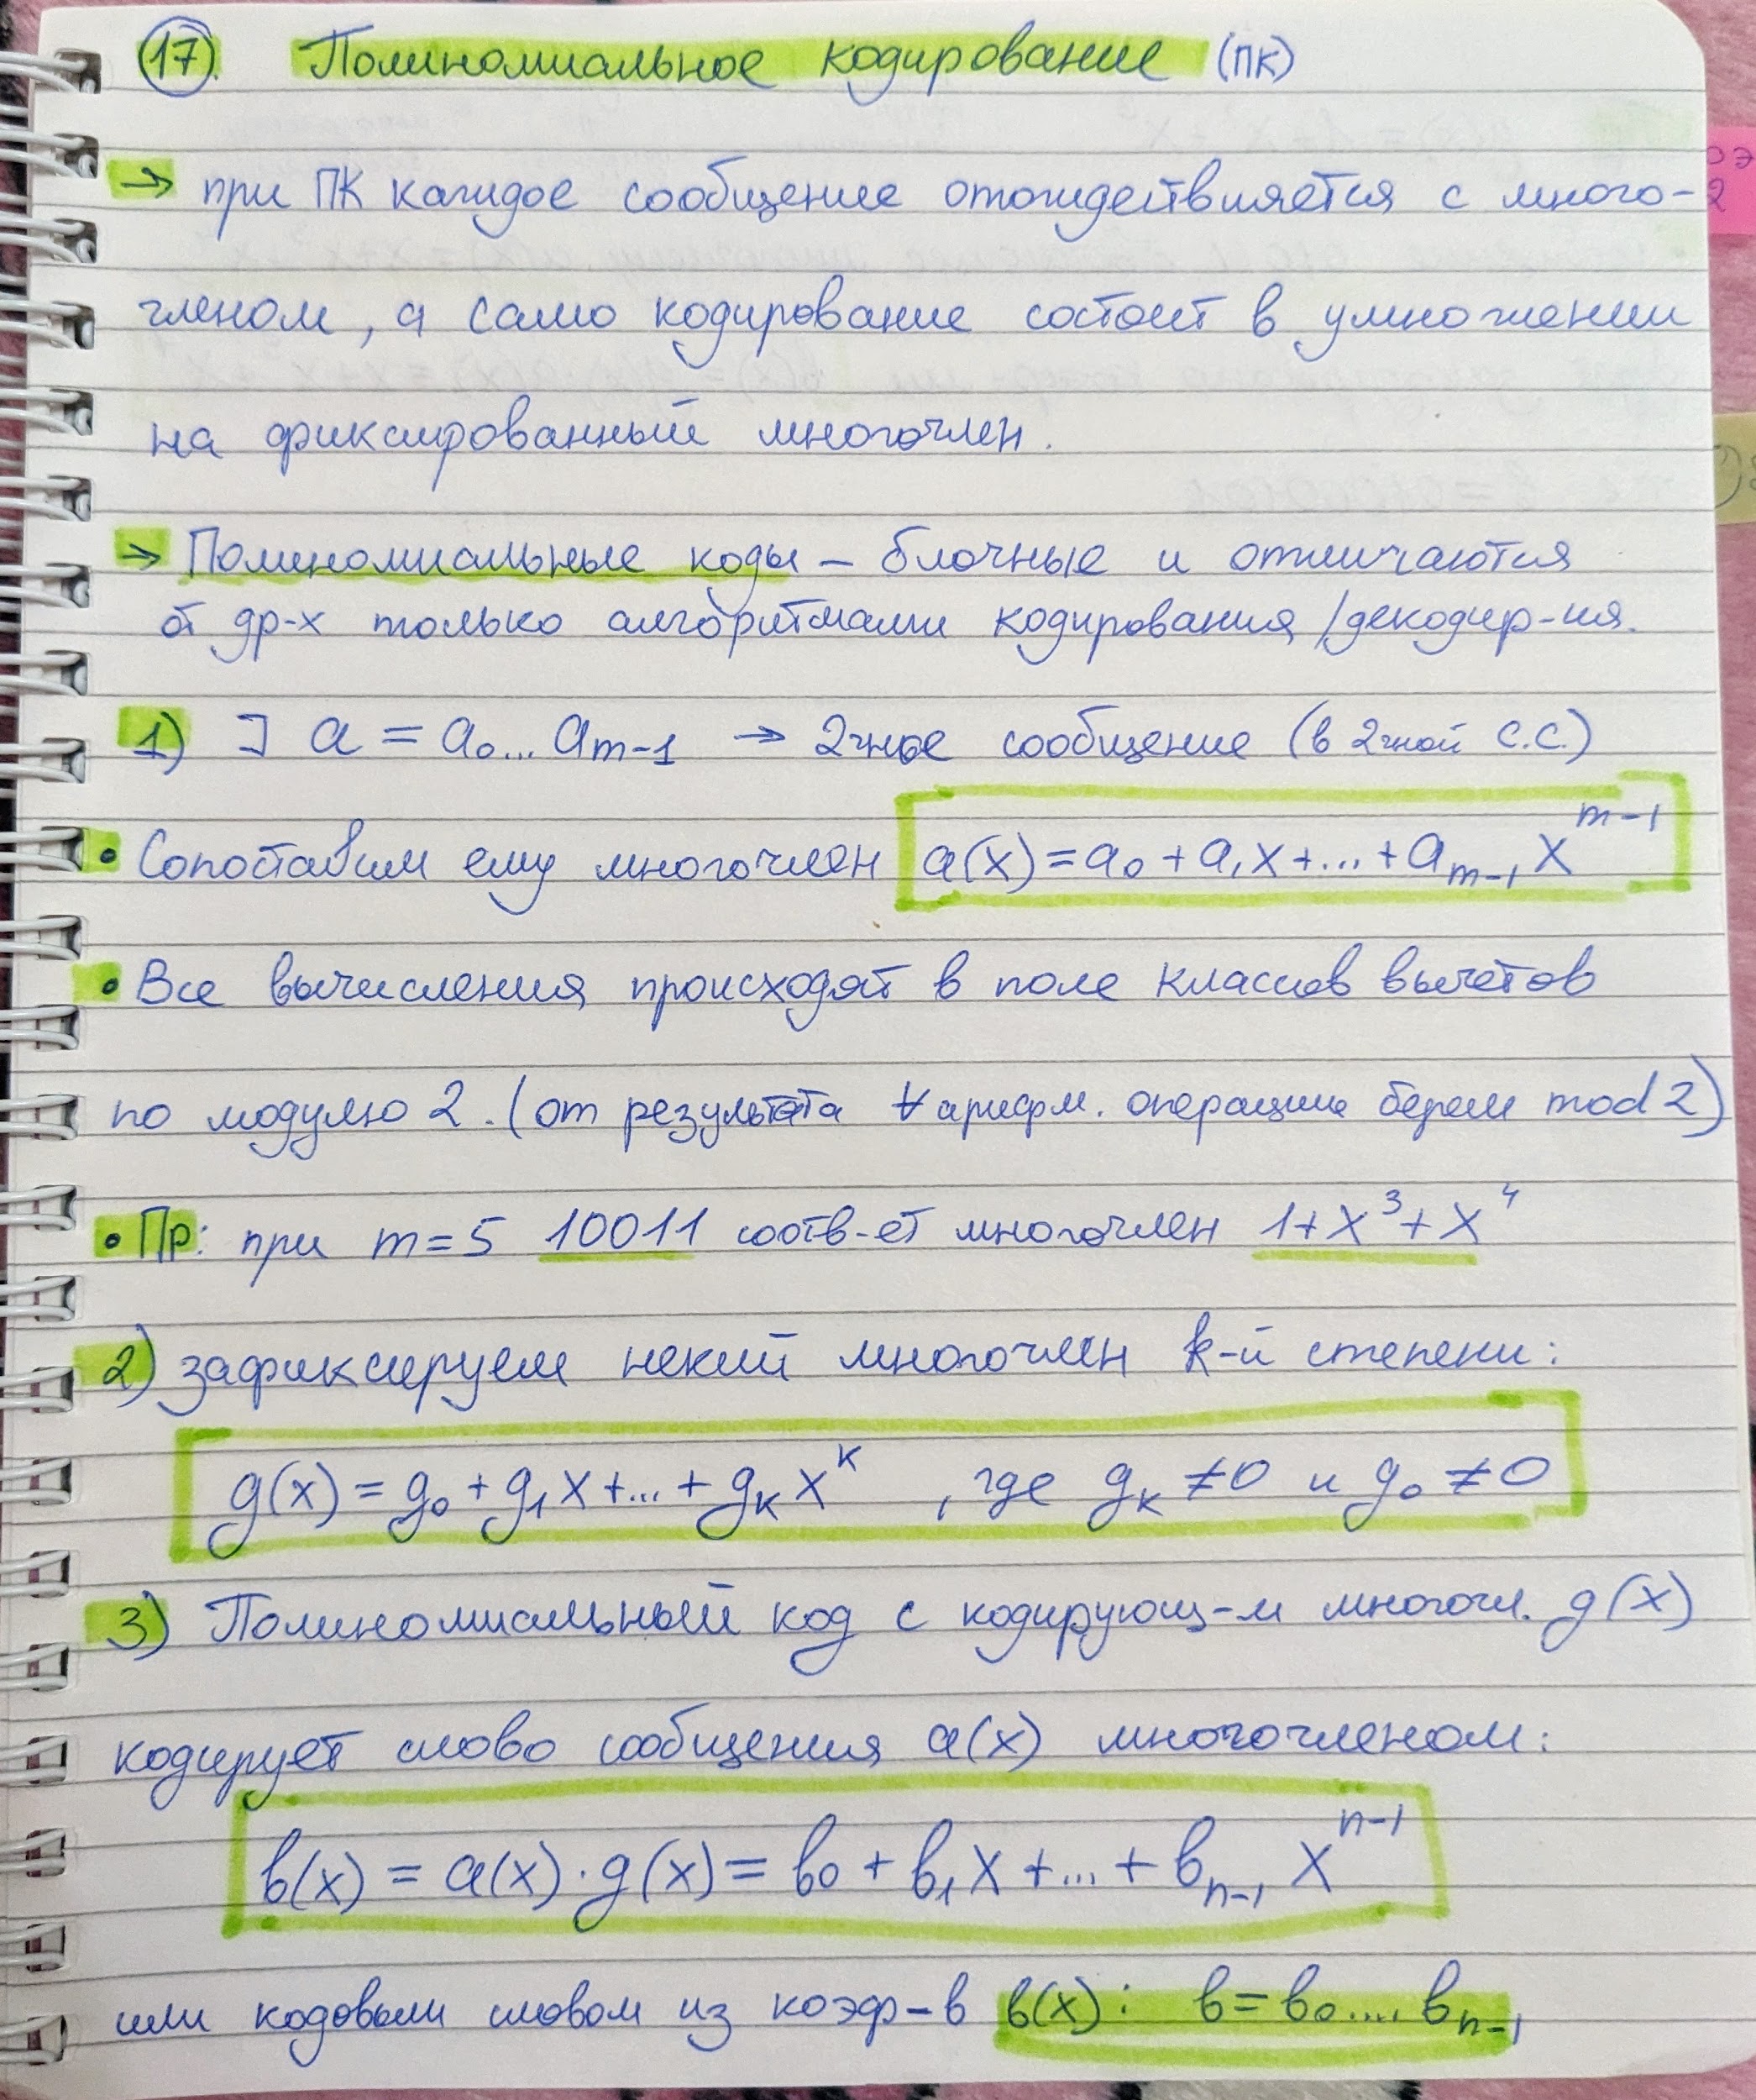 17. Полиномиальное кодирование (ПК)
→ при ПК каждое сообщение отождествляется с много-
членом, а само кодирование состоит в умножении
на фиксированный многочлен.
→ Полиномиальные коды – блочные и отличаются
от др-х только алгоритмами кодирования/декодир-ия.
1) ∃ a = a₀...aₘ₋₁ → 2чное сообщение (в 2чной С.С.)
• Сопоставим ему многочлен a(x)=a₀+a₁x+...+aₘ₋₁x^{m-1}
• Все вычисления происходят в поле классов вычетов
по модулю 2. (от результата ∀ арифм. операции берем mod2)
• Пр: при m=5 10011 соотв-ет многочлен 1+x³+x⁴
2) зафиксируем некий многочлен k-й степени:
g(x)=g₀+g₁x+...+gₖxᵏ, где gₖ≠0 и g₀≠0
3) Полиномиальный код с кодирующ-м многочл. g(x)
кодирует слово сообщения a(x) многочленом:
b(x) = a(x)·g(x)=b₀+b₁x+...+bₙ₋₁x^{n-1}
или кодовым словом из коэф-в b(x): b=b₀....bₙ₋₁